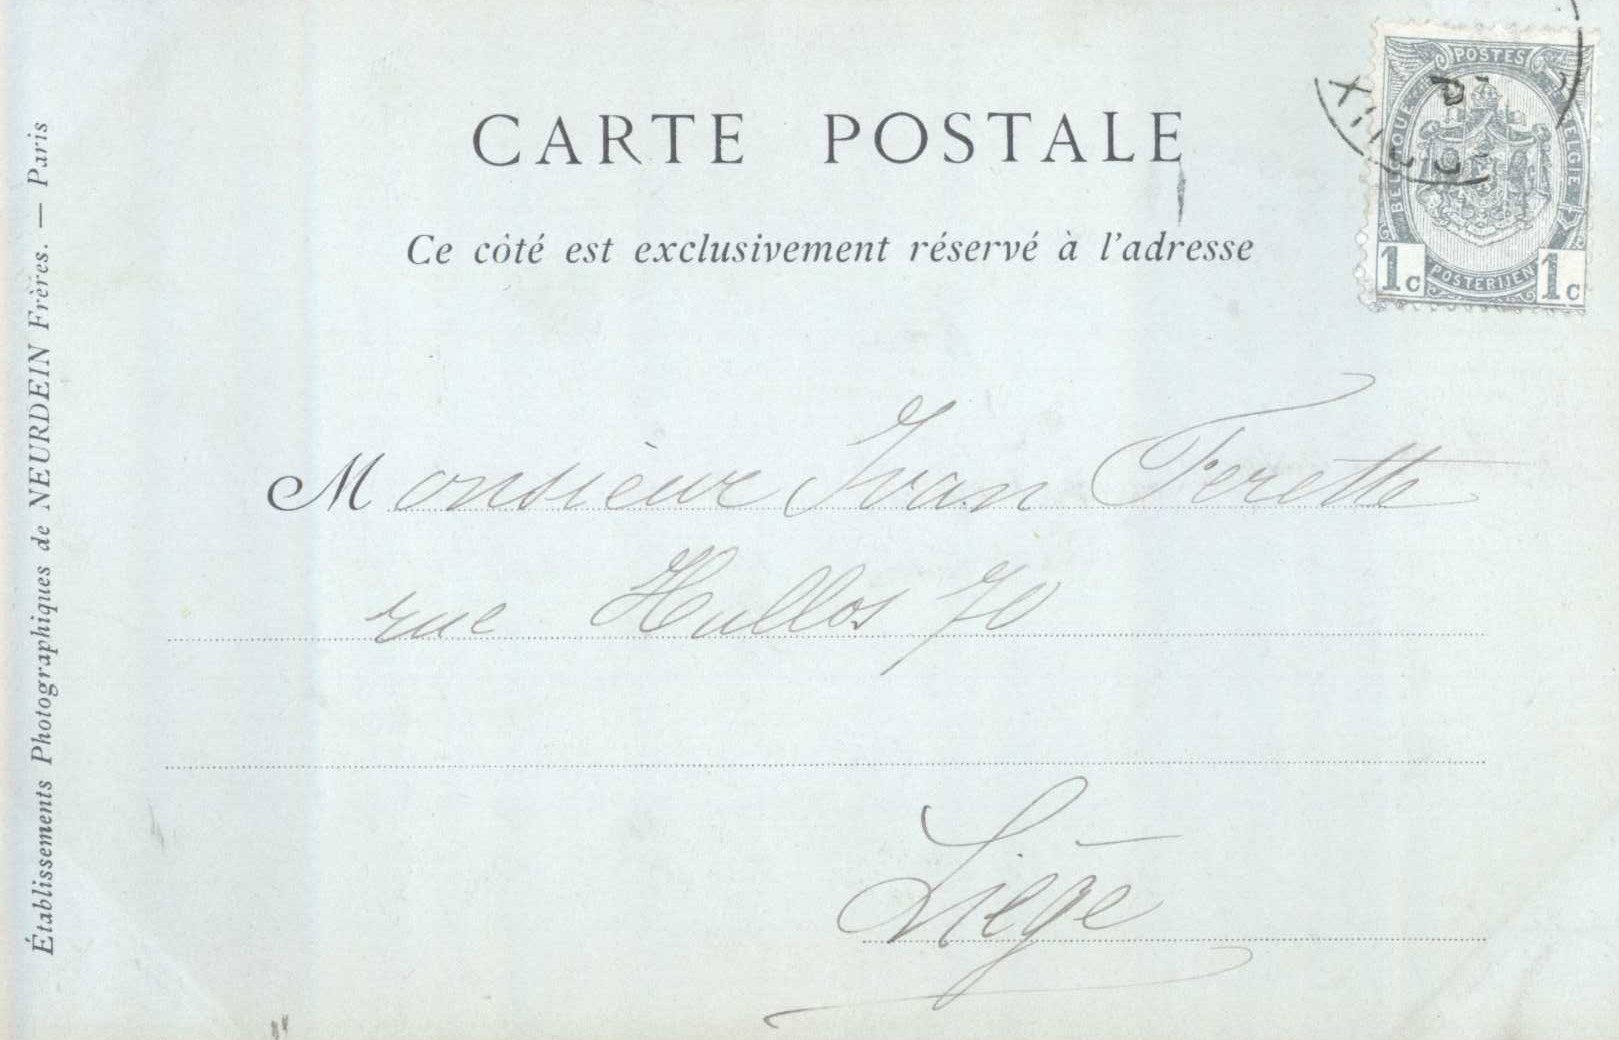 CARTE POSTALE
Ce côté est exclusivement réservé à l'adresse
POSTES
BELGIQUE
BELGIE
POSTERIJEN
1c 1c
Monsieur Ivan Ferette
rue Hullos 70
Liége
Établissements Photographiques de NEURDEIN Frères. — Paris